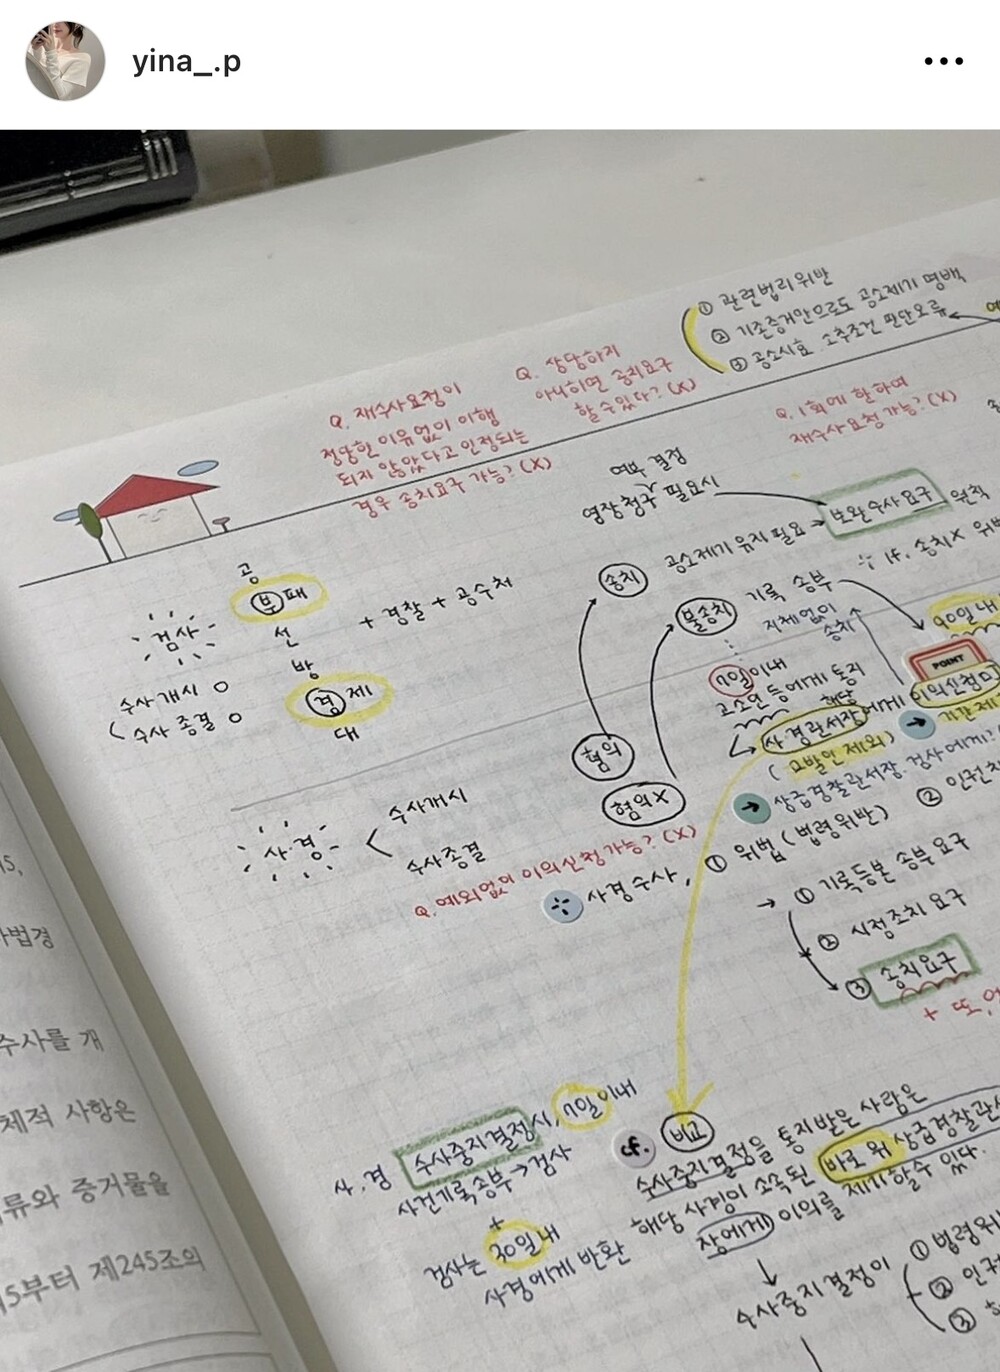 yina_.p
① 관련법리위반
② 기존증거만으로도 공소제기 명백
③ 공소시효 소추조건 판단오류
Q. 재수사요청이
정당한 이유없이 이행
되지 않았다고 인정되는
경우 송치요구 가능? (X)
Q. 상당하지
아니하면 송치요구
할 수 있다? (X)
Q. 1회에 한하여
재수사요청 가능? (X)
여부 결정
영장청구 필요시
보완수사요구
원칙
공소제기 유지 필요
송치
If. 송치X 위반
공
부패
선
방
경제
대
+ 경찰 + 공수처
검사
수사개시 O
수사종결 O
불송치
기록 송부
지체없이
송치
90일 내
POINT
7일 이내
고소인 등에게 통지
해당
사경관서장에게 이의신청
(고발인 제외)
상급경찰관서장·검사에게?
혐의
혐의X
사·경
수사개시
수사종결
Q. 예외없이 이의신청가능? (X)
사경수사,
① 위법 (법령위반)
② 인권
→ ① 기록등본 송부요구
② 시정조치 요구
③ 송치요구
+ 또,
사·경 수사중지결정시, 7일 이내
사건기록송부→검사
+
검사는 30일 내
사경에게 반환
cf.
비교
수사중지결정을 통지받은 사람은
해당 사경이 소속된 바로 위 상급경찰관서
장에게 이의를 제기할 수 있다.
수사중지결정이
① 법령위
② 인권
③
수사를 개
체적 사항은
류와 증거물을
5부터 제245조의